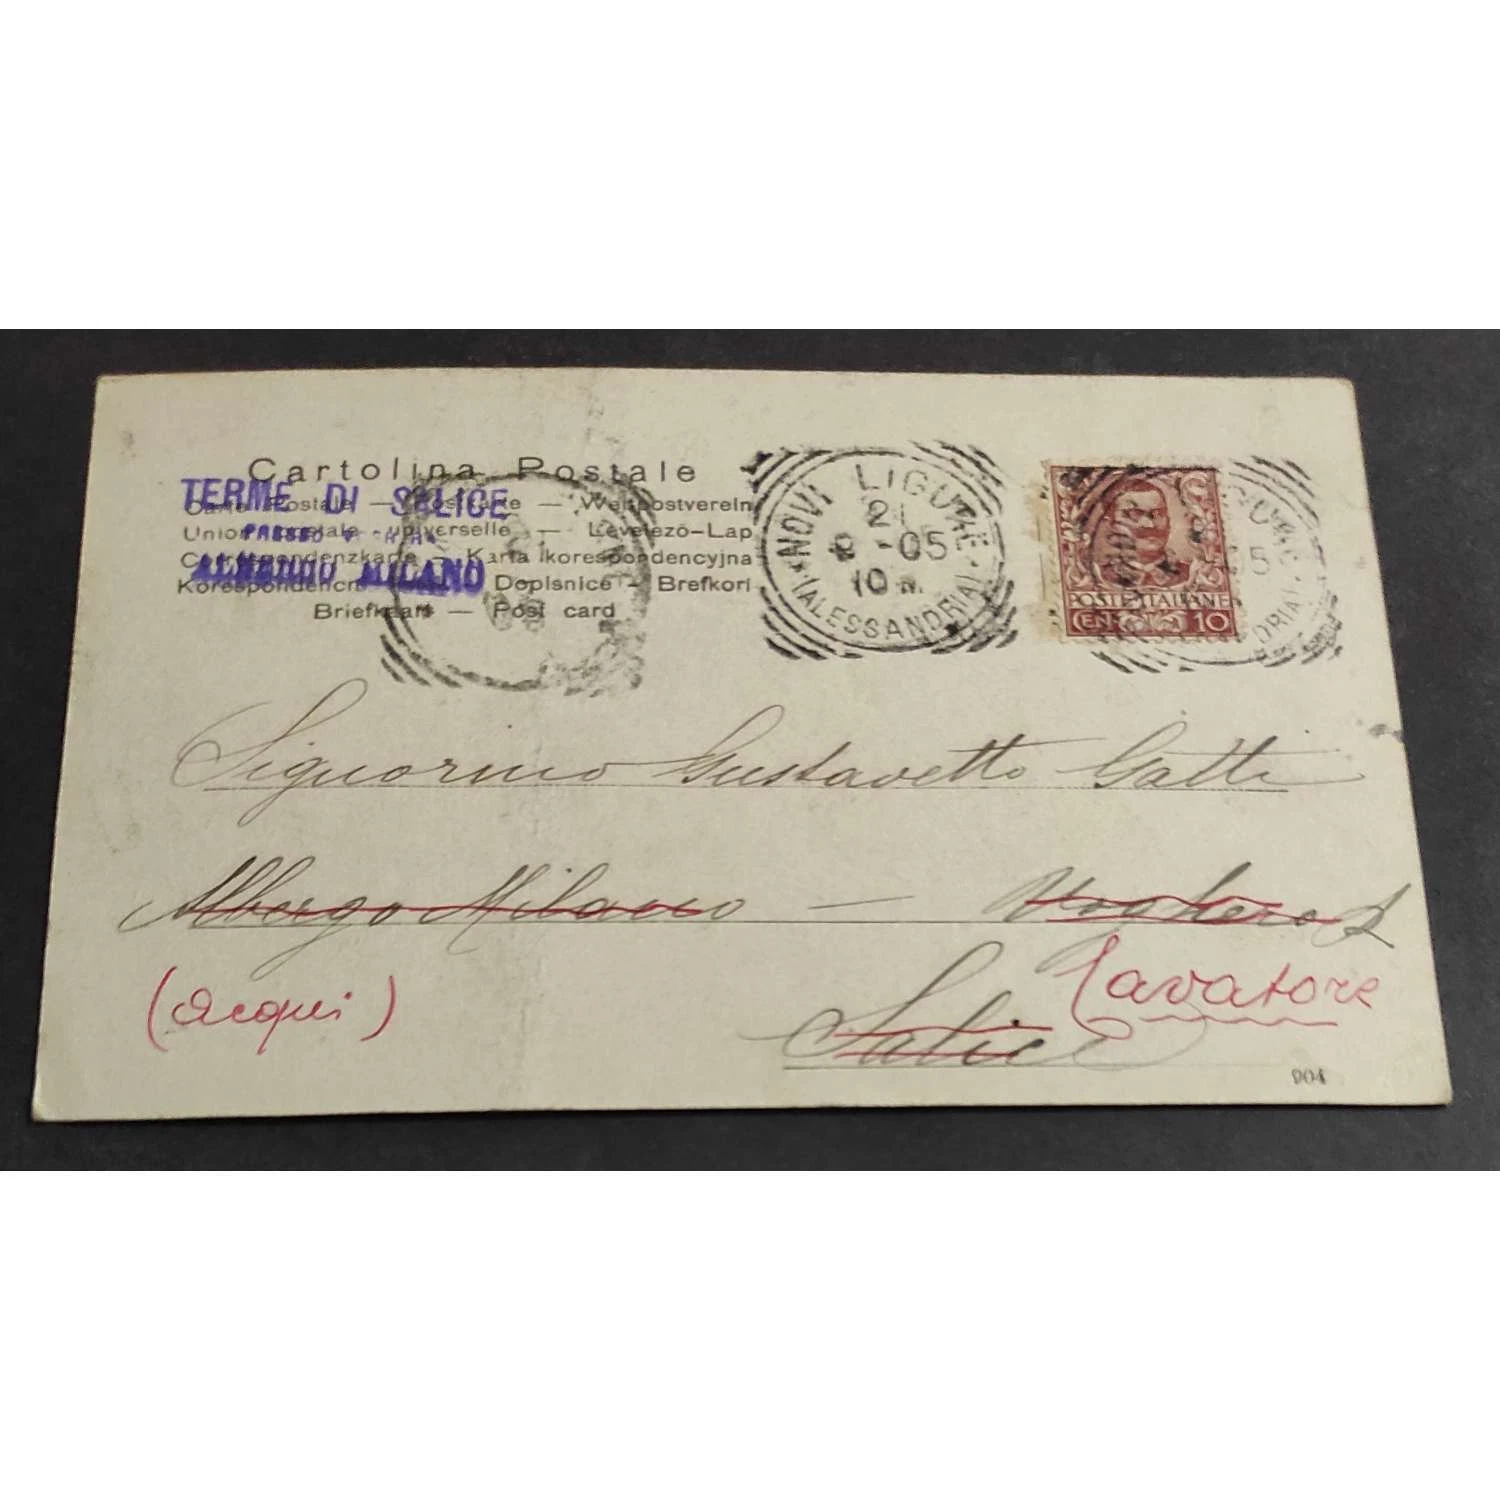 Cartolina Postale
TERME DI SALICE
Carte Postale — Postkarte — Weltpostverein
Union postale universelle — Levelező-Lap
PRESSO
Correspondenzkarte — Karta korespondencyjna
ALBERGO MILANO
Korespondenční Dopisnice — Brefkort
Briefkaart — Post card
NOVI LIGURE
21
05
10 M
(ALESSANDRIA)
NOVI LIGURE
5
POSTE ITALIANE
CENT. 10
Signorino Gustavetto Gatti
Albergo Milano — Voghera
(Acqui)
Lavatore
Salice
904